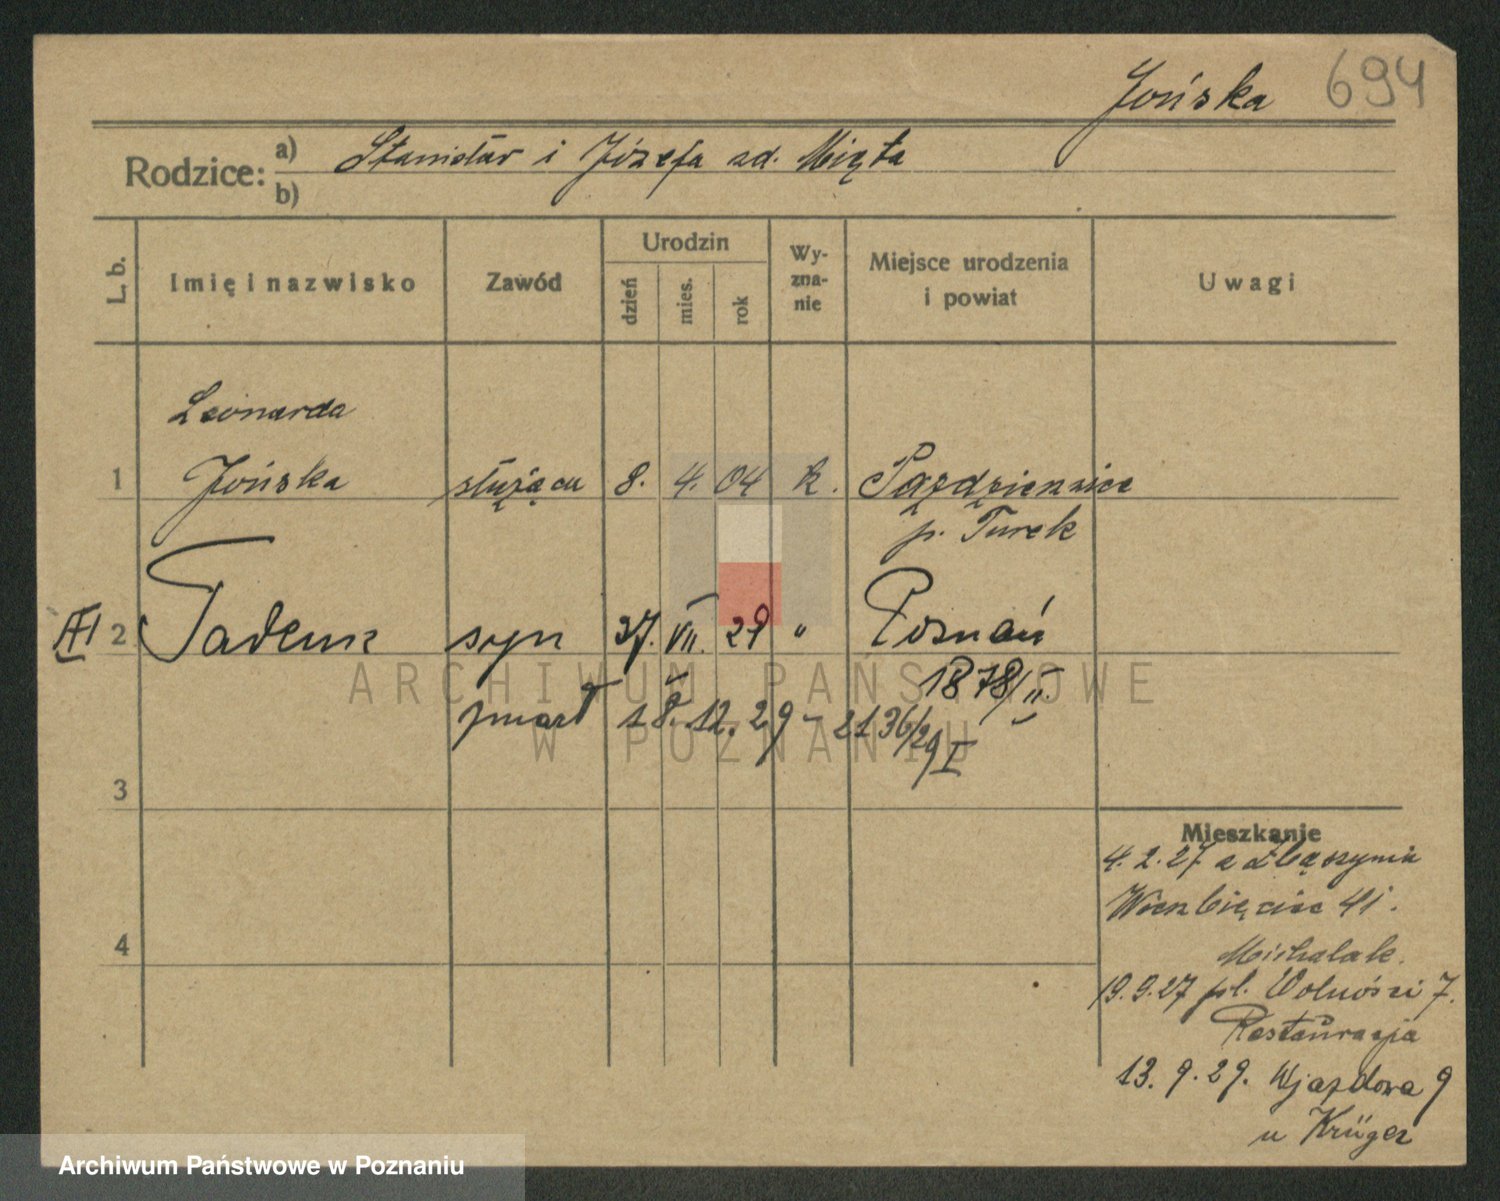 Jońska 694
Rodzice: a) Stanisław i Józefa zd. Mięta
b)
L. b.
Imię i nazwisko
Zawód
Urodzin
dzień
mies.
rok
Wy-
zna-
nie
Miejsce urodzenia
i powiat
Uwagi
Leonarda
1 Jońska służąca 8. 4. 04 k.
p. Turek
2 Tadeusz syn 27. VII. 29 " Poznań
1878/II.
zmarł 18. 12. 29 - 2136/29 I
3
4
Mieszkanie
4. 2. 27 z Zbąszynia
Wierzbięcice 41.
Michalak.
19.9.27 pl. Wolności 7.
Restauracja
13. 9. 29. Wjazdowa 9
u Krüger
ARCHIWUM PAŃSTWOWE
W POZNANIU
Archiwum Państwowe w Poznaniu